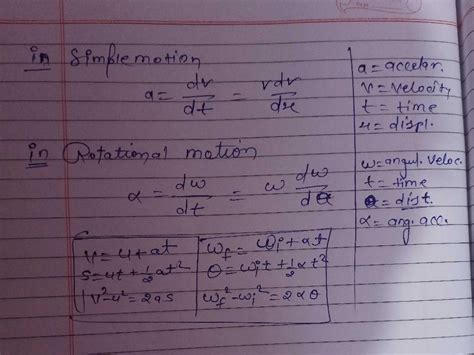 in Simple motion
a = dv/dt = vdv/dx
in Rotational motion
α = dω/dt = ω dω/dθ
v = u + at
s = ut + 1/2 at²
v² - u² = 2as
ωf = ωi + αt
θ = ωit + 1/2 αt²
ωf² - ωi² = 2αθ
a = acceler.
v = velocity
t = time
x = displ.
ω = angul. veloc.
t = time
θ = dist.
α = ang. acc.